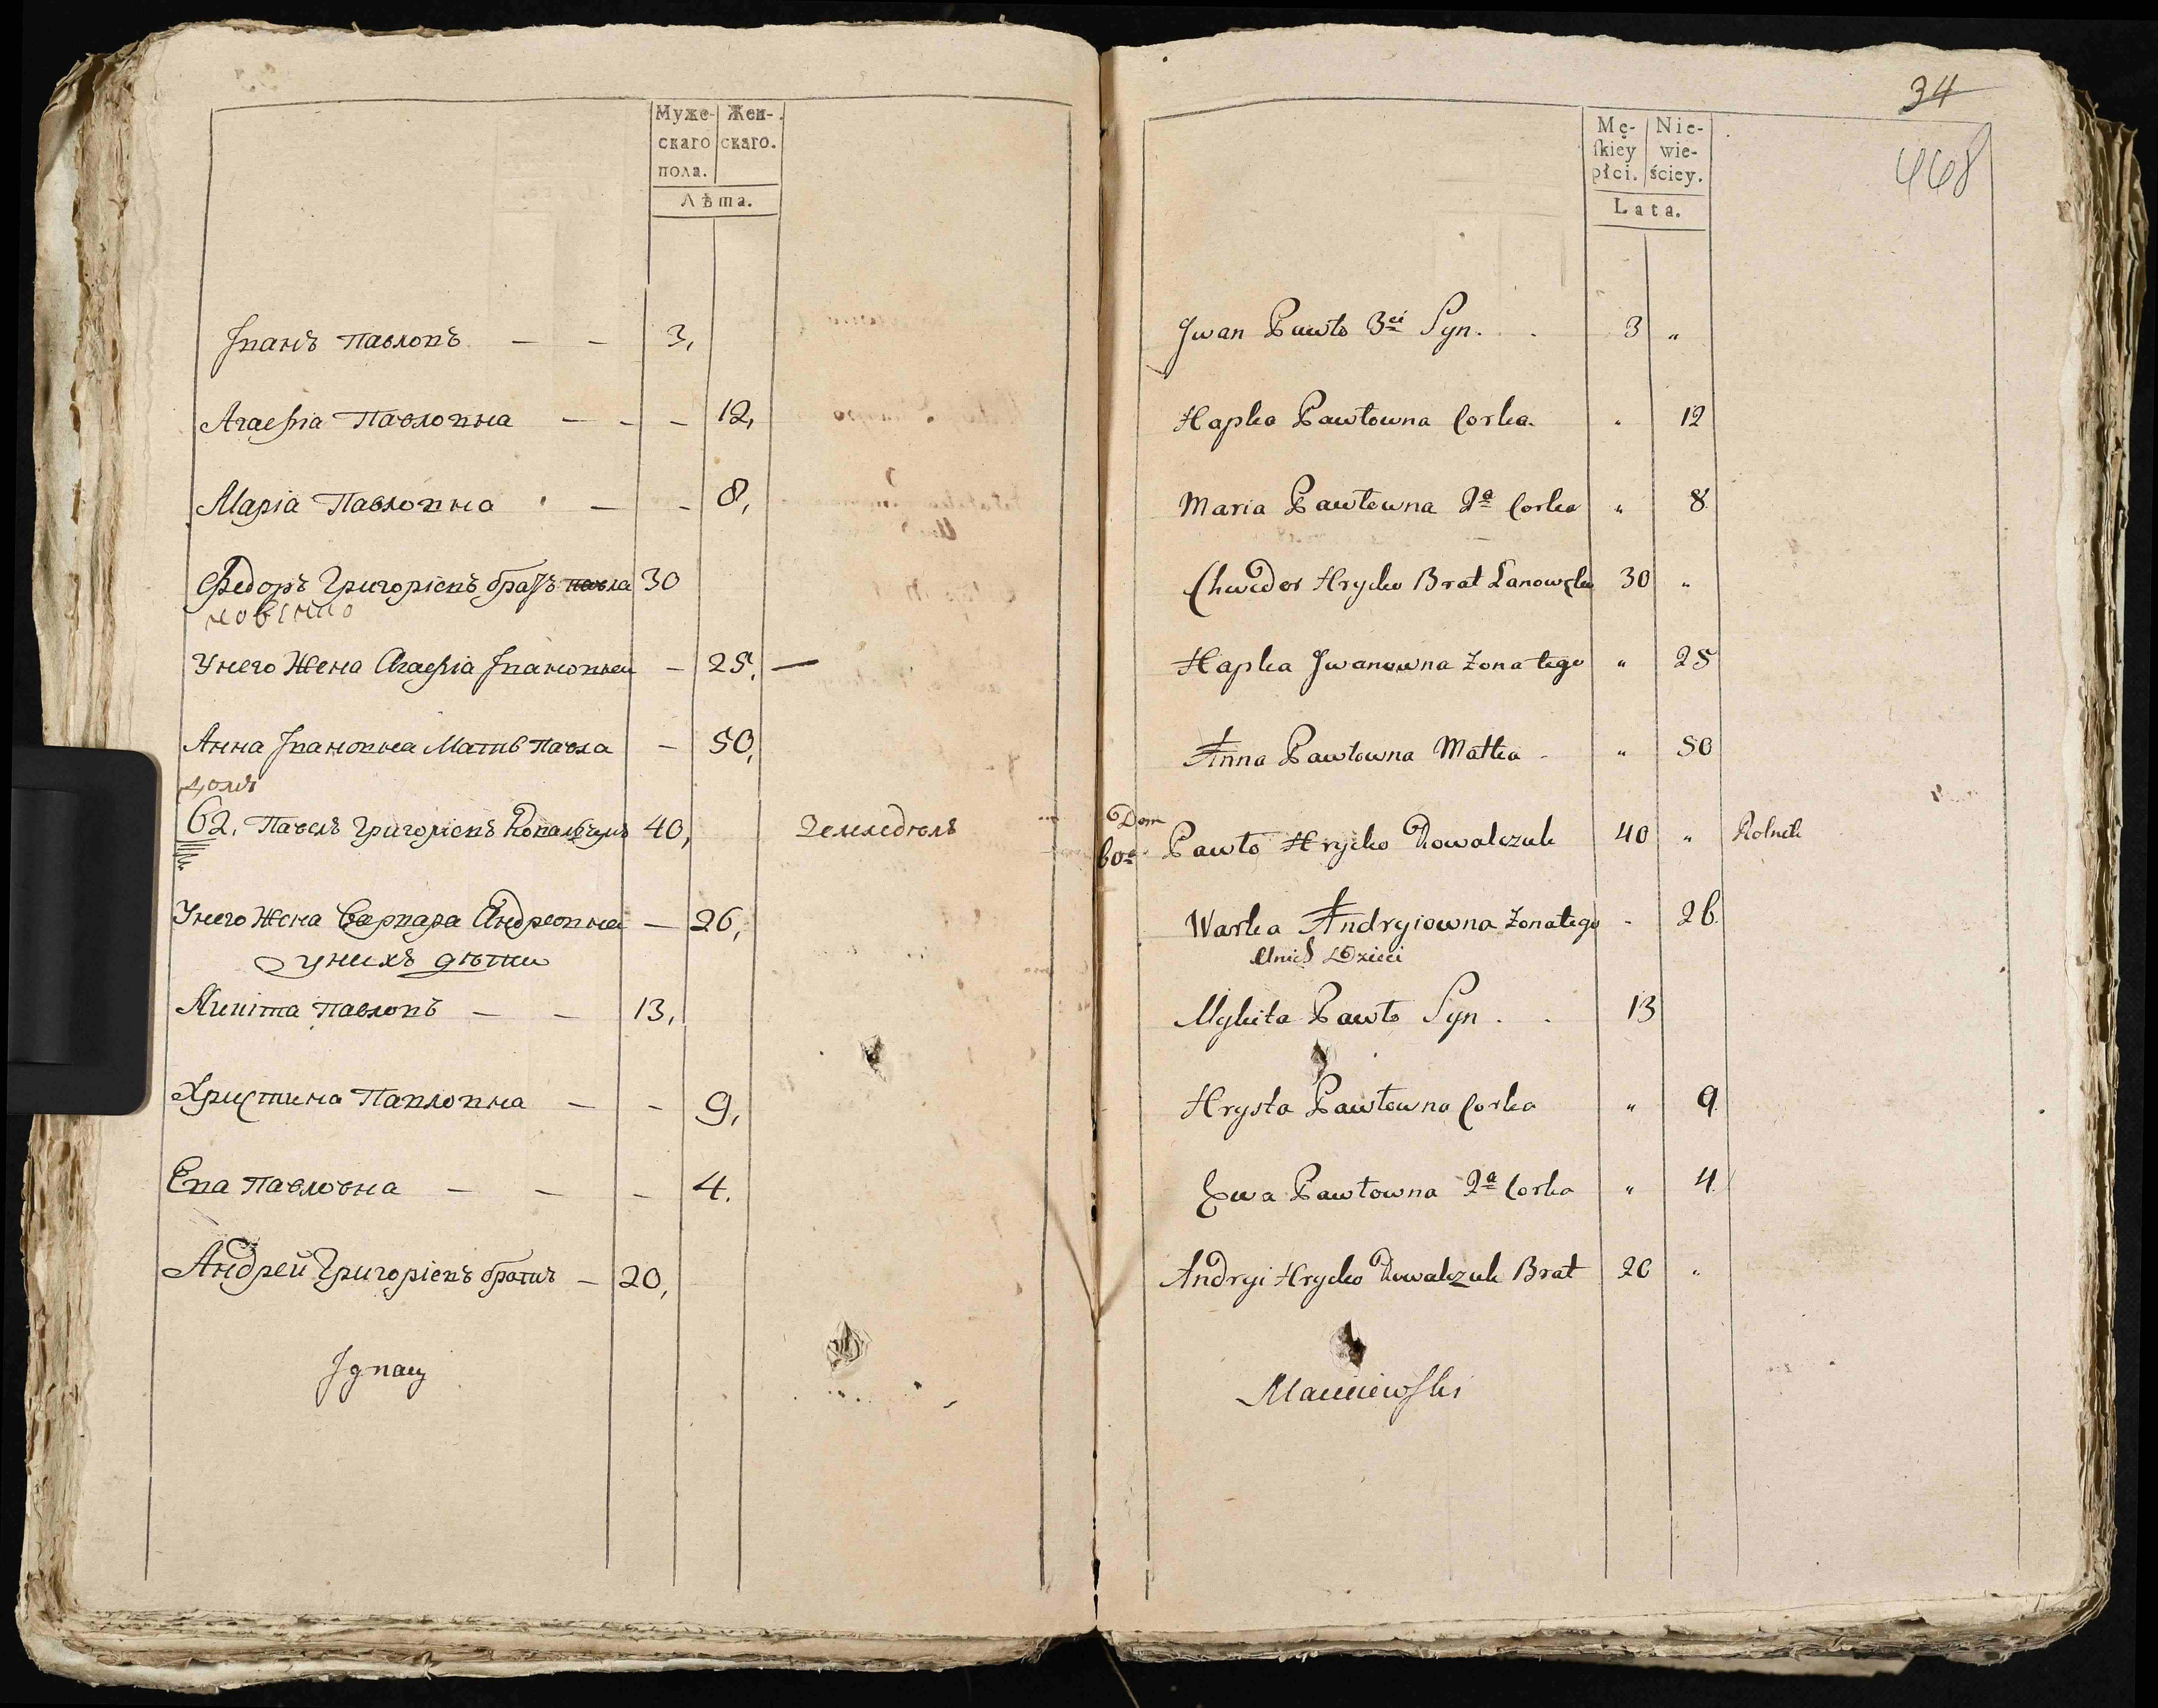 Муже- Жен-
скаго скаго.
пола.
Лѣта.
Іванъ Павловъ — — 3,
Агафіа Павловна — — — 12,
Маріа Павловна — — 8,
Федоръ Григоріевъ братъ 30
Унего Жена Агафіа Івановна — 25, —
Анна Івановна Мать Павла — 50,
домъ
62. Павелъ Григоріевъ Ковальчукъ 40, Земледѣлъ
Унего Жена Варвара Андреовна — 26,
унихъ дѣти
Микита Павловъ — — 13,
Христина Павловна — — 9,
Ева Павловна — — — 4.
Андрей Григоріевъ братъ — 20,
Ignacy
34
468
Mę- Nie-
ſkiey wie-
płci. ściey.
Lata.
Jwan Pawło 3ci Syn. . 3 "
Hapka Pawłowna Corka. " 12
Maria Pawłowna 2a Corka " 8.
Chwedor Hryćko Brat Lanowczka 30 "
Hapka Jwanowna Zona tego " 25
Anna Pawłowna Matka - " 50
Dom
60a Pawło Hryćko Kowalczuk 40 " Rolnik
Warka Andryiowna Zona tego - 26.
Unich Dzieci
Mykita Pawło Syn . . 13
Hrysta Pawłowna Corka " 9.
Ewa Pawłowna 2a Corka " 4.
Andryi Hryćko Kowalczuk Brat 20 "